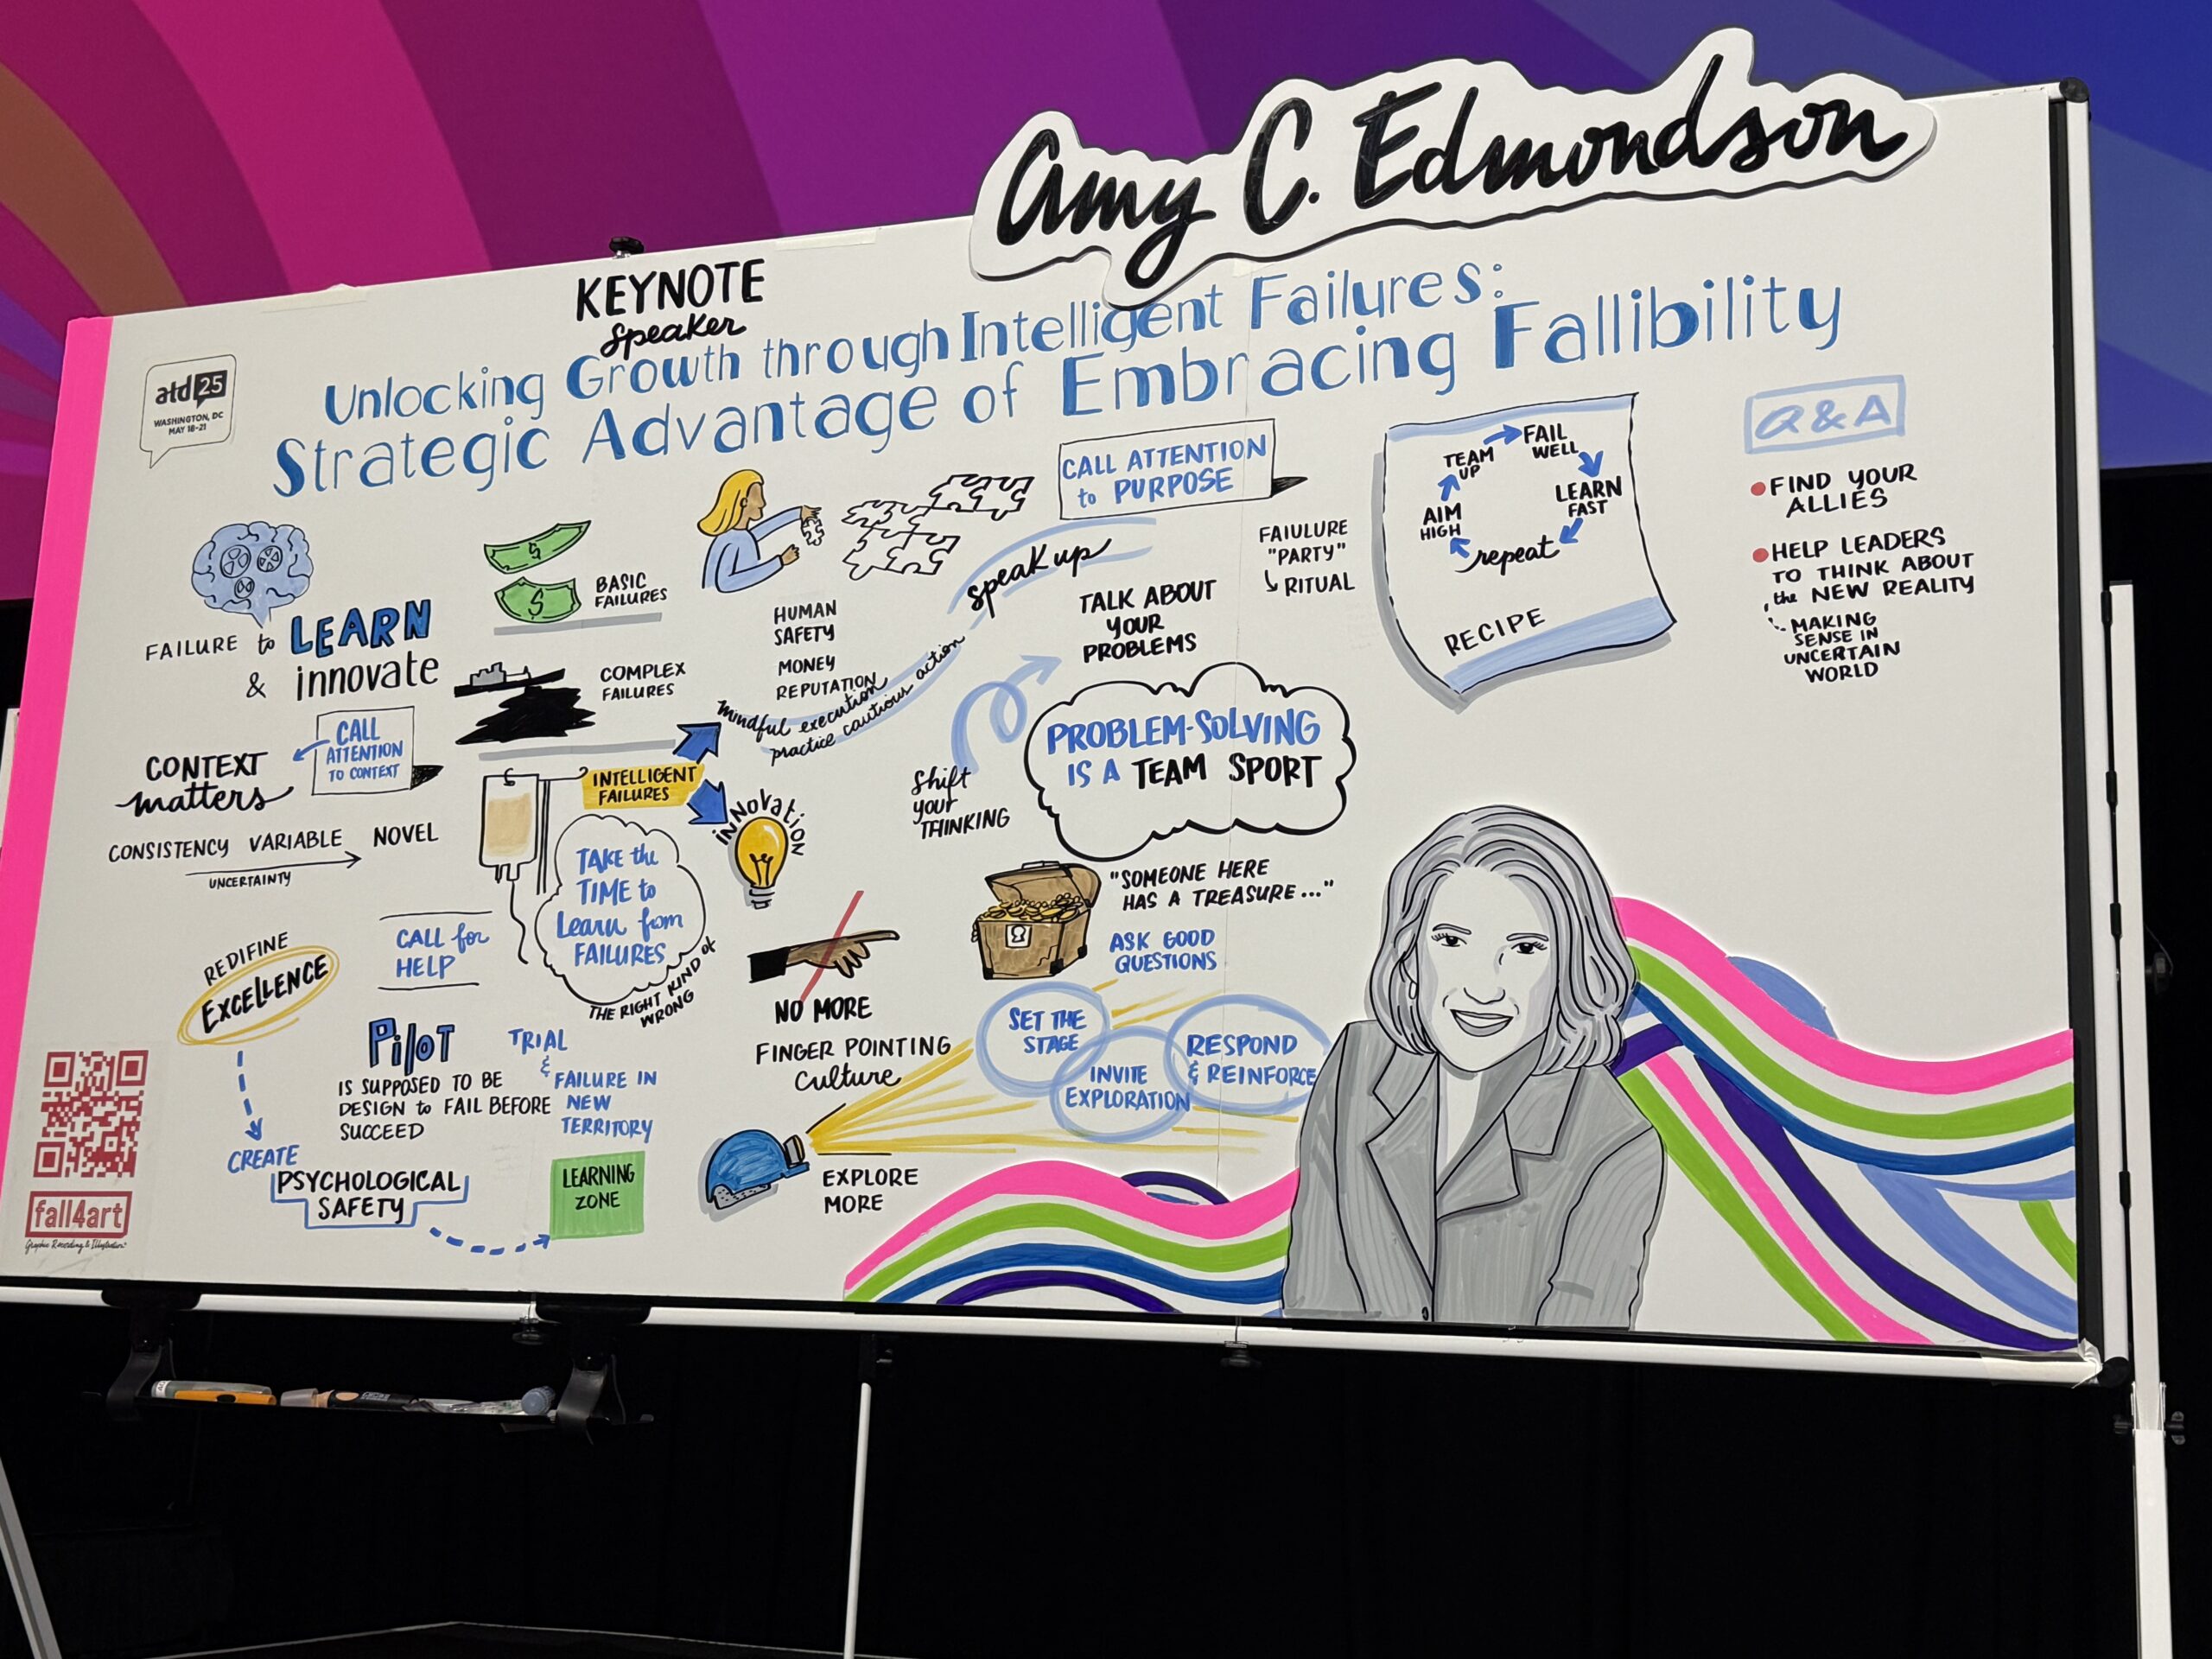 Amy C. Edmondson
KEYNOTE
speaker
Unlocking Growth through Intelligent Failures:
Strategic Advantage of Embracing Fallibility
atd 25
WASHINGTON, DC
MAY 18-21
FAILURE to LEARN
& innovate
CONTEXT
matters
CALL
ATTENTION
TO CONTEXT
CONSISTENCY VARIABLE NOVEL
UNCERTAINTY
REDIFINE
EXCELLENCE
CALL for
HELP
PILOT
IS SUPPOSED TO BE
DESIGN to FAIL BEFORE
SUCCEED
TRIAL
& FAILURE IN
NEW
TERRITORY
CREATE
PSYCHOLOGICAL
SAFETY
LEARNING
ZONE
fall4art
Graphic Recording & Illustration
$
$
BASIC
FAILURES
COMPLEX
FAILURES
INTELLIGENT
FAILURES
TAKE the
TIME to
Learn from
FAILURES
THE RIGHT KIND of
WRONG
INNOVATION
HUMAN
SAFETY
MONEY
REPUTATION
mindful execution
practice cautious action
speak up
CALL ATTENTION
to PURPOSE
FAIULURE
"PARTY"
RITUAL
TALK ABOUT
YOUR
PROBLEMS
Shift
your
THINKING
PROBLEM-SOLVING
IS A TEAM SPORT
"SOMEONE HERE
HAS A TREASURE..."
ASK GOOD
QUESTIONS
NO MORE
FINGER POINTING
culture
SET THE
STAGE
INVITE
EXPLORATION
RESPOND
& REINFORCE
EXPLORE
MORE
AIM
HIGH
TEAM
UP
FAIL
WELL
LEARN
FAST
repeat
RECIPE
Q&A
FIND YOUR
ALLIES
HELP LEADERS
TO THINK ABOUT
the NEW REALITY
MAKING
SENSE IN
UNCERTAIN
WORLD